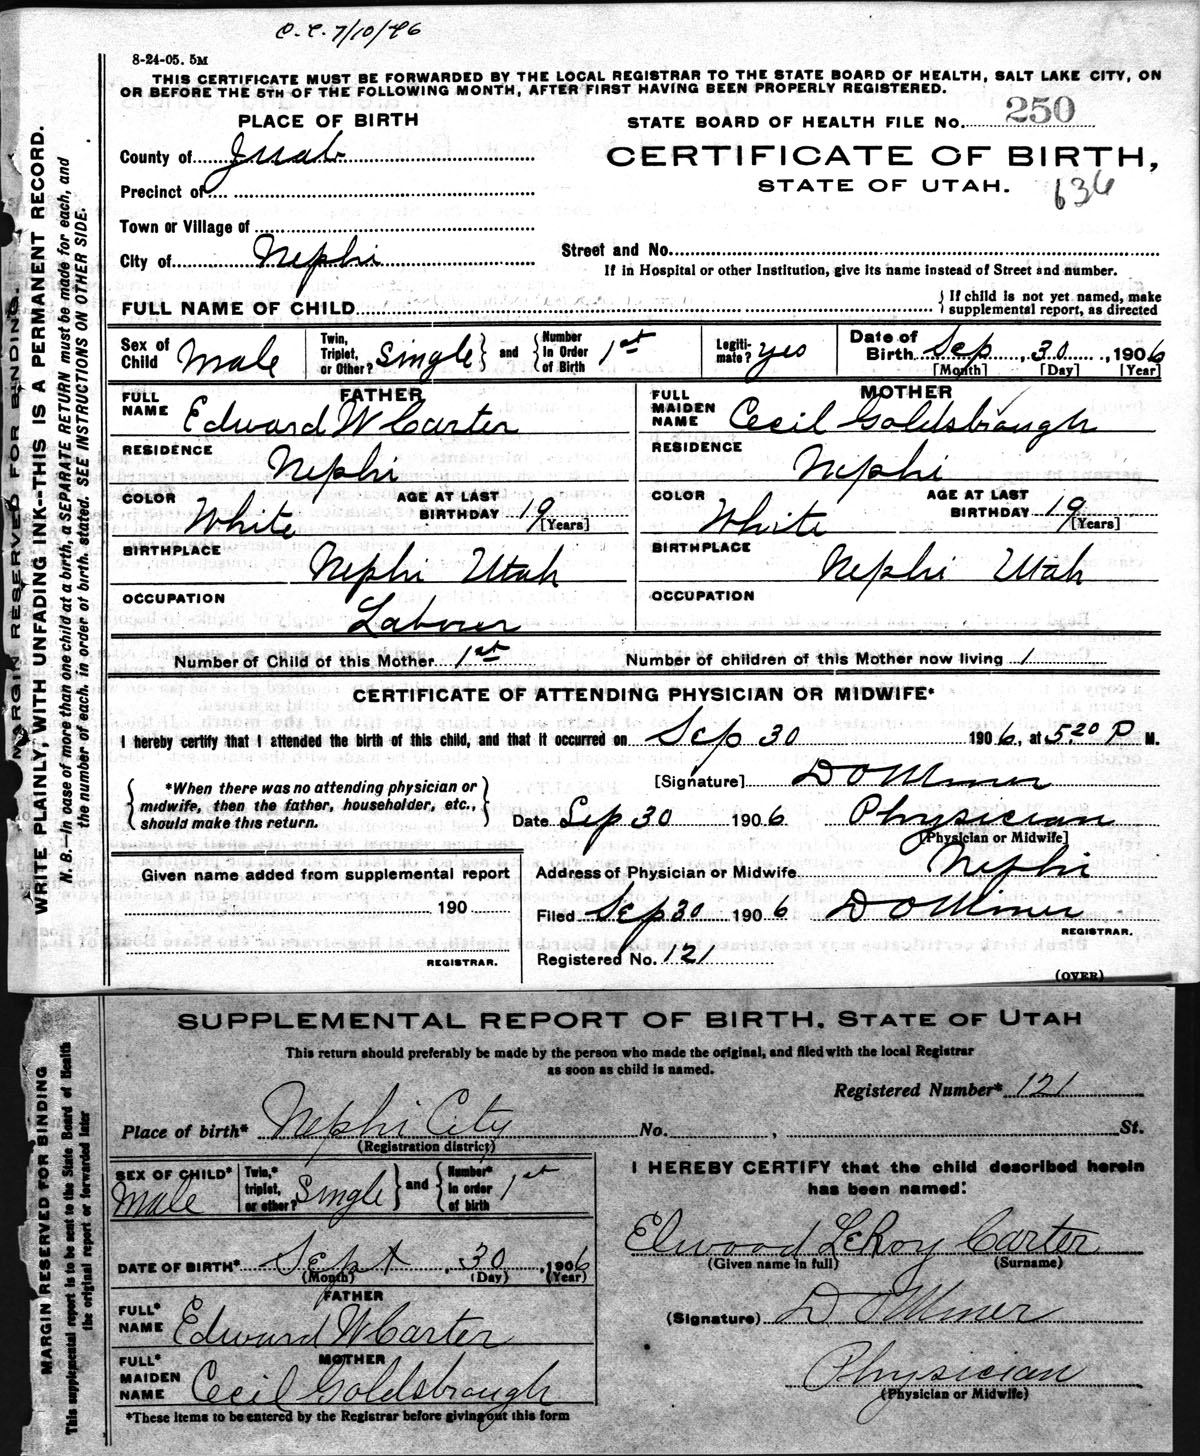 C.C. 7/10/46
8-24-05. 5M
THIS CERTIFICATE MUST BE FORWARDED BY THE LOCAL REGISTRAR TO THE STATE BOARD OF HEALTH, SALT LAKE CITY, ON
OR BEFORE THE 5TH OF THE FOLLOWING MONTH, AFTER FIRST HAVING BEEN PROPERLY REGISTERED.
PLACE OF BIRTH
STATE BOARD OF HEALTH FILE No. 250
County of Juab
CERTIFICATE OF BIRTH,
STATE OF UTAH. 636
Precinct of
Town or Village of
City of Nephi
Street and No.
If in Hospital or other Institution, give its name instead of Street and number.
FULL NAME OF CHILD { If child is not yet named, make
supplemental report, as directed
Sex of Child Male
Twin, Triplet, or Other? Single } and { Number in Order of Birth 1st
Legiti-mate? yes
Date of Birth Sep, 30, 1906
[Month] [Day] [Year]
FATHER
FULL NAME Edward W Carter
RESIDENCE Nephi
COLOR White AGE AT LAST BIRTHDAY 19 [Years]
BIRTHPLACE Nephi Utah
OCCUPATION Laborer
MOTHER
FULL MAIDEN NAME Cecil Goldsbrough
RESIDENCE Nephi
COLOR White AGE AT LAST BIRTHDAY 19 [Years]
BIRTHPLACE Nephi Utah
OCCUPATION
Number of Child of this Mother 1st Number of children of this Mother now living 1
CERTIFICATE OF ATTENDING PHYSICIAN OR MIDWIFE*
I hereby certify that I attended the birth of this child, and that it occurred on Sep 30 1906, at 5.20 P M.
{ *When there was no attending physician or
midwife, then the father, householder, etc.,
should make this return. }
[Signature] D O Miner
Date Sep 30 1906 Physician
[Physician or Midwife]
Given name added from supplemental report
190
REGISTRAR.
Address of Physician or Midwife Nephi
Filed Sep 30 1906 D O Miner
REGISTRAR.
Registered No. 121
(OVER)
MARGIN RESERVED FOR BINDING.
WRITE PLAINLY, WITH UNFADING INK--THIS IS A PERMANENT RECORD.
N. B.—In case of more than one child at a birth, a SEPARATE RETURN must be made for each, and
the number of each, in order of birth, stated. SEE INSTRUCTIONS ON OTHER SIDE.
SUPPLEMENTAL REPORT OF BIRTH. STATE OF UTAH
This return should preferably be made by the person who made the original, and filed with the local Registrar
as soon as child is named.
Registered Number* 121
Place of birth* Nephi City No. , St.
(Registration district)
SEX OF CHILD* Male
Twin,* triplet, or other? Single } and { Number* in order of birth 1st
DATE OF BIRTH* Sept, 30, 1906
(Month) (Day) (Year)
FATHER
FULL* NAME Edward W Carter
MOTHER
FULL* MAIDEN NAME Cecil Goldsbrough
*These items to be entered by the Registrar before giving out this form
I HEREBY CERTIFY that the child described herein
has been named:
Elwood LeRoy Carter
(Given name in full) (Surname)
(Signature) D O Miner
Physician
(Physician or Midwife)
MARGIN RESERVED FOR BINDING
This supplemental report is to be sent to the State Board of Health
the original report or forwarded later